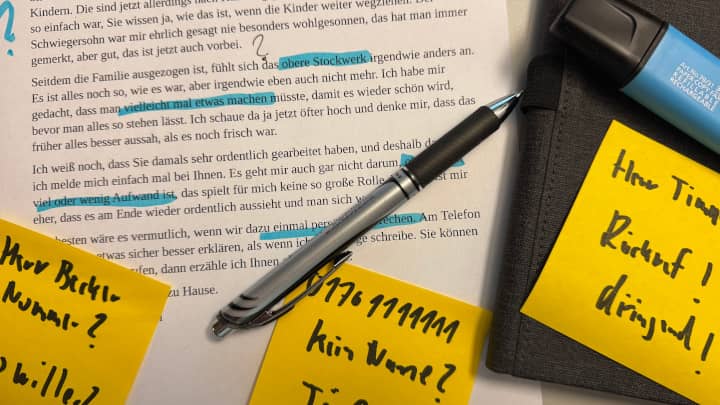 Kindern. Die sind jetzt allerdings nach
so einfach war, Sie wissen ja, wie das ist, wenn die Kinder weiter wegziehen. Der
Schwiegersohn war mir ehrlich gesagt nie besonders wohlgesonnen, das hat man immer
gemerkt, aber gut, das ist jetzt auch vorbei.
?
?
Seitdem die Familie ausgezogen ist, fühlt sich das obere Stockwerk irgendwie anders an.
Es ist alles noch so, wie es war, aber irgendwie eben auch nicht mehr. Ich habe mir
gedacht, dass man vielleicht mal etwas machen müsste, damit es wieder schön wird,
bevor man alles so stehen lässt. Ich schaue da jetzt öfter hoch und denke mir, dass das
früher alles besser aussah, als es noch frisch war.
Ich weiß noch, dass Sie damals sehr ordentlich gearbeitet haben, und deshalb
ich melde mich einfach mal bei Ihnen. Es geht mir auch gar nicht darum,
viel oder wenig Aufwand ist, das spielt für mich keine so große Rolle. ist mir
eher, dass es am Ende wieder ordentlich aussieht und man sich
besten wäre es vermutlich, wenn wir dazu einmal Am Telefon
etwas sicher besser erklären, als wenn ich schreibe. Sie können
dann erzähle ich Ihnen
zu Hause.
Herr
Nummer?
0176 1111111
kein Name?
Herr
Rückruf!
dringend!